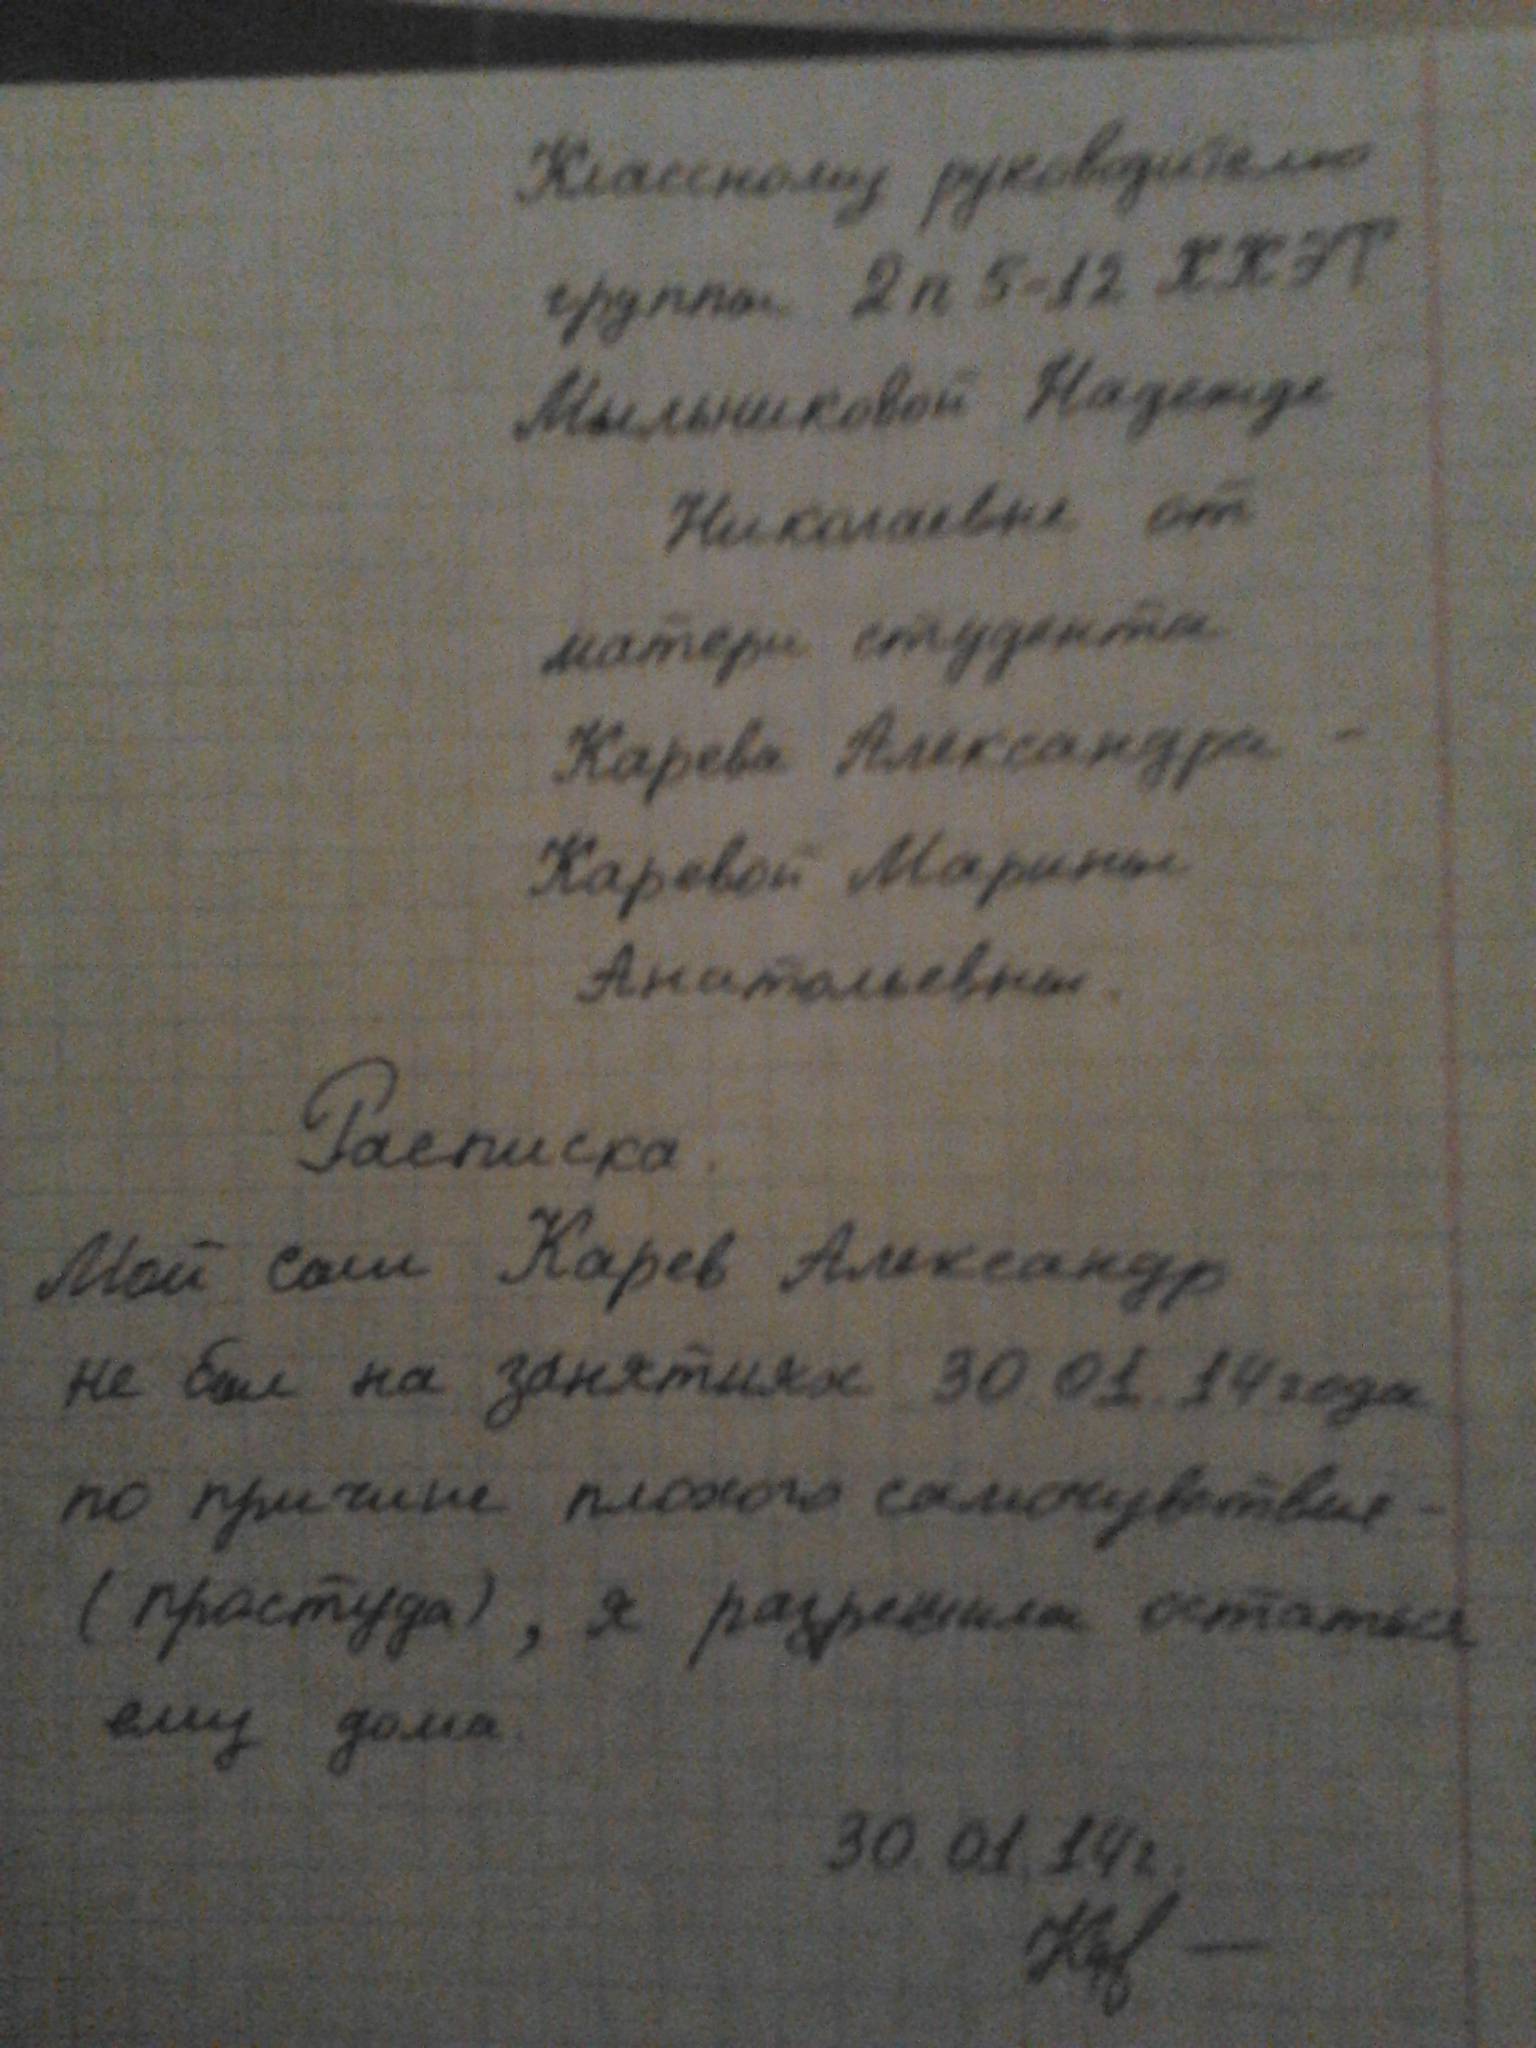 Классному руководителю
группы 2п5-12 ХКЭТ
Мыльниковой Надежде
Николаевне от
матери студента
Карева Александра -
Каревой Марины
Анатольевны.
Расписка.
Мой сын Карев Александр
не был на занятиях 30.01.14 года
по причине плохого самочувствия -
(простуда), я разрешила остаться
ему дома.
30.01.14г.